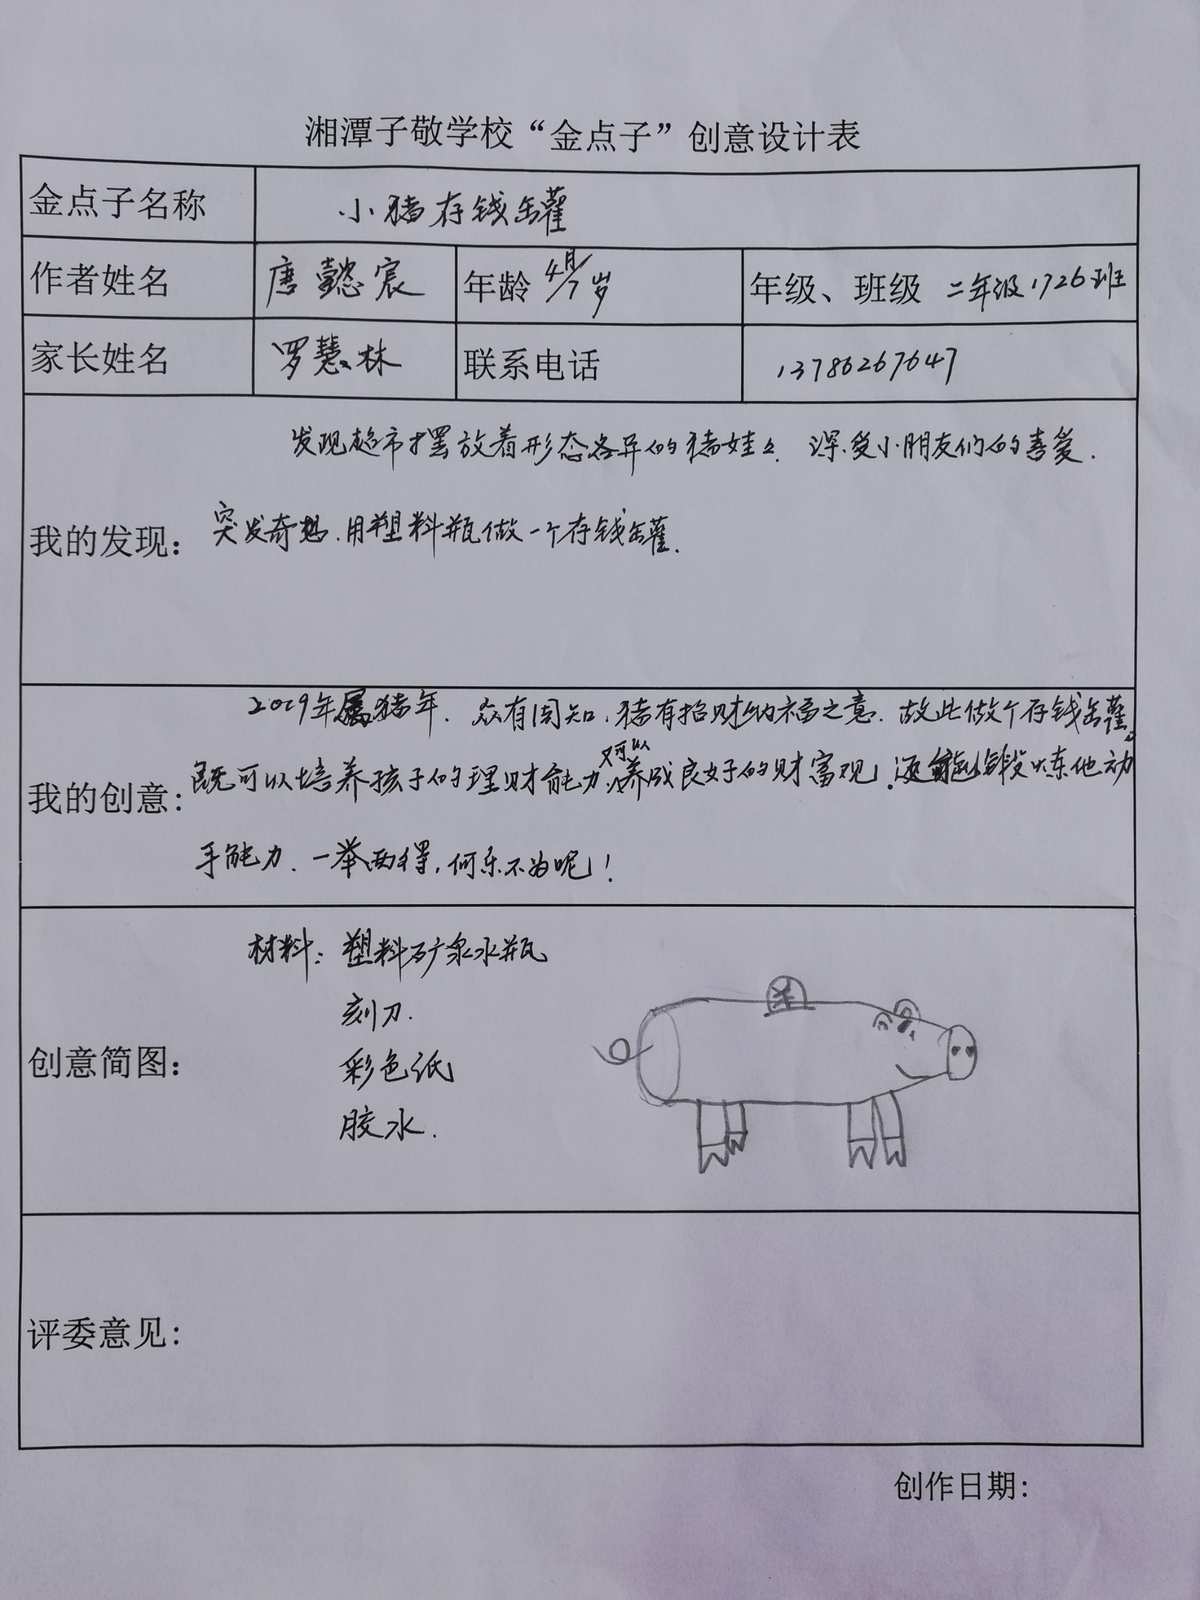 湘潭子敬学校“金点子”创意设计表
金点子名称 小猪存钱罐
作者姓名 唐懿宸 年龄 7岁 年级、班级 二年级1726班
家长姓名 罗慧林 联系电话 13786267647
发现超市摆放着形态各异的猪娃々、深受小朋友们的喜爱.
我的发现: 突发奇想.用塑料瓶做一个存钱罐.
2019年属猪年.众有周知,猪有招财纳福之意.故此做个存钱罐,
又可以
我的创意: 既可以培养孩子的理财能力,养成良好的财富观.还能锻炼他动
手能力.一举两得,何乐不为呢!
材料:塑料矿泉水瓶
刻刀.
创意简图: 彩色纸
胶水.
评委意见:
创作日期: